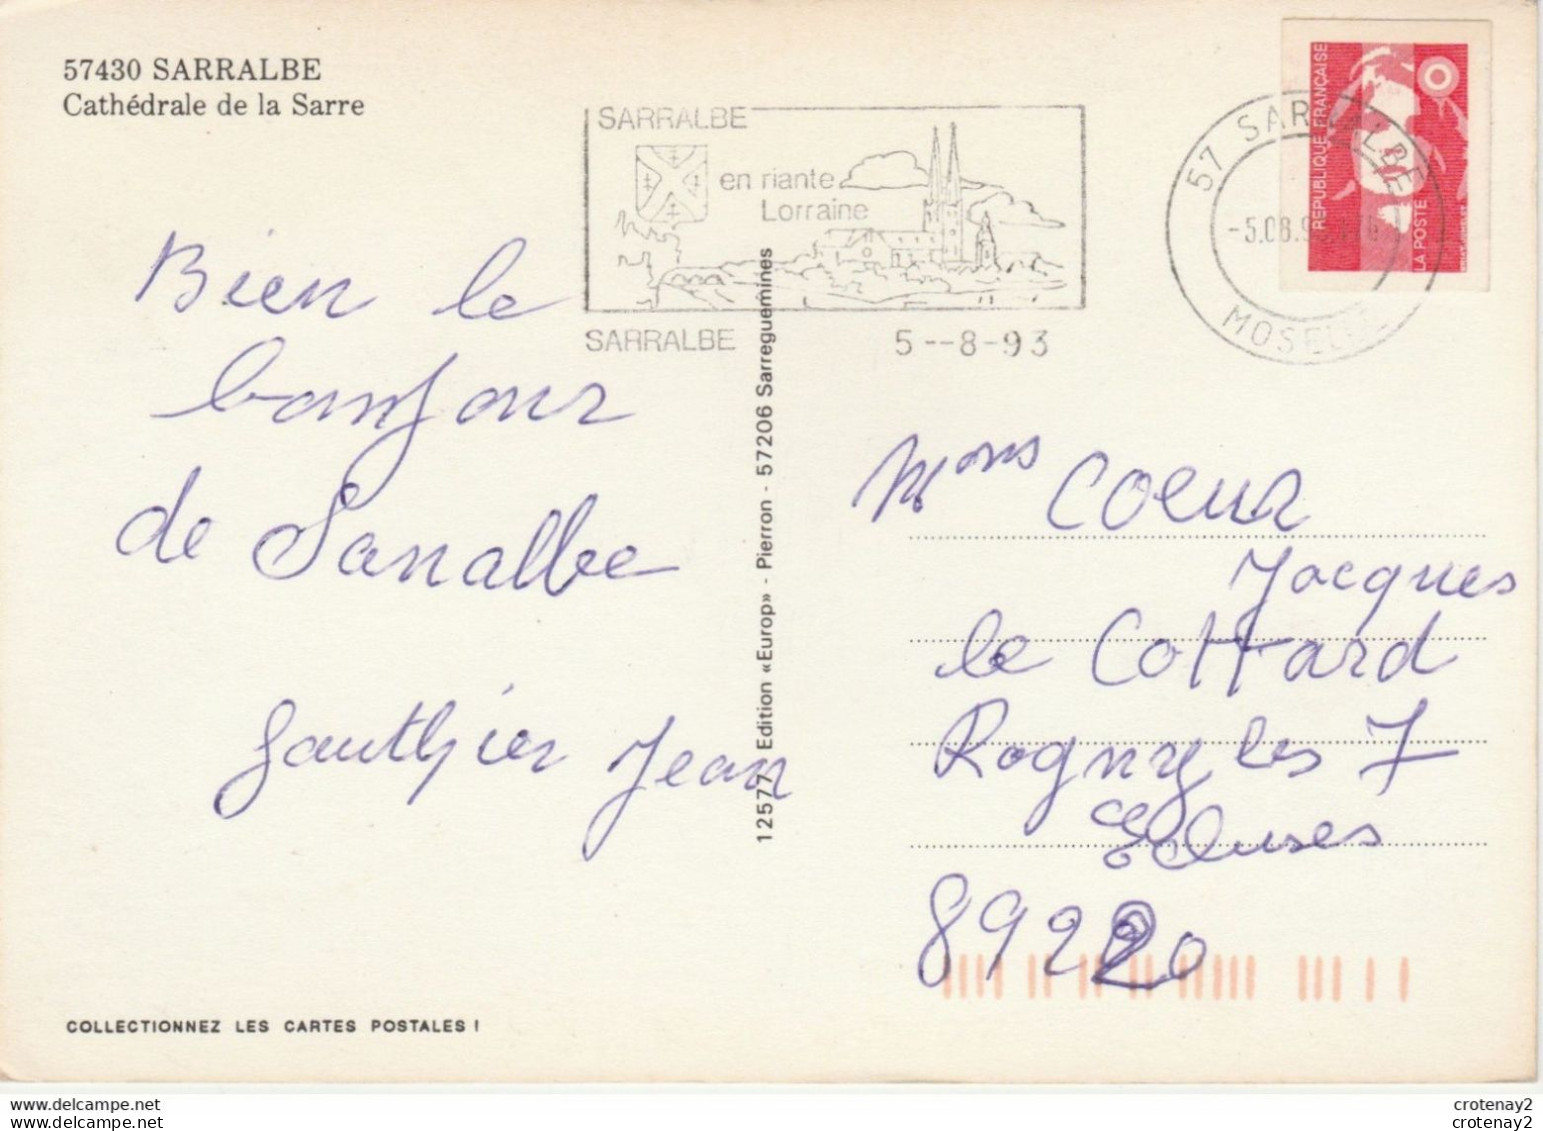 57430 SARRALBE
Cathédrale de la Sarre
SARRALBE
en riante
Lorraine
SARRALBE
5--8-93
57 SARRALBE
-5.08.9
MOSELLE
RÉPUBLIQUE FRANÇAISE
LA POSTE
Bien le
bonjour
de Sarralbe
Gauthier Jean
12577 - Edition «Europ» - Pierron - 57206 Sarreguemines
Mons Coeur
Jacques
le Cottard
Rogny les 7
Ecluses
89220
COLLECTIONNEZ LES CARTES POSTALES !
delcampe.net
delcampe.net
crotenay2
crotenay2